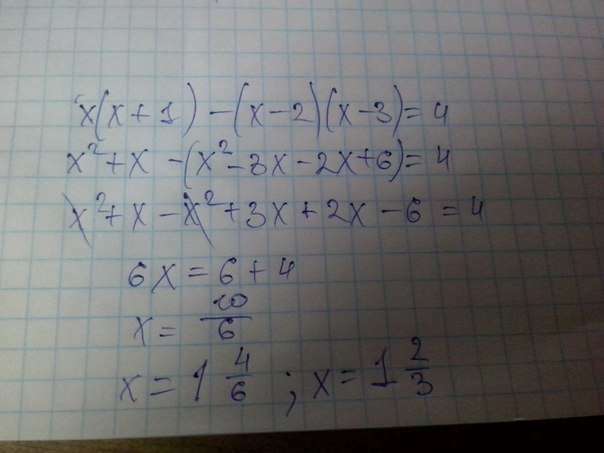 x(x+1)-(x-2)(x-3)=4
x²+x-(x²-3x-2x+6)=4
x²+x-x²+3x+2x-6=4
6x=6+4
x=10/6
x=1 4/6 ; x=1 2/3